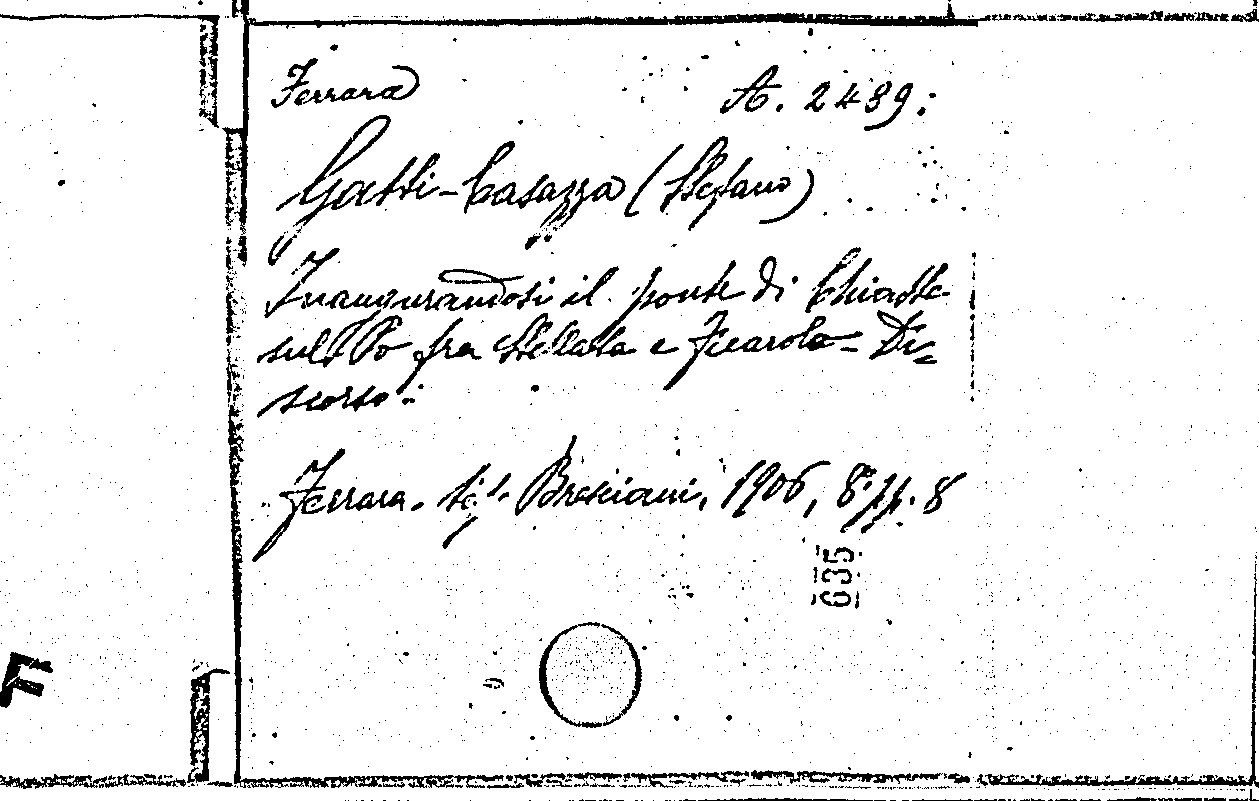 Ferrara A. 2489.
Gatti-Casazza (Stefano)
Inaugurandosi il ponte di Chiatte
sul Po fra Stellata e Ficarolo - Di=
scorso.
Ferrara. tip. Bresciani, 1906, 8° pp. 8
635
F